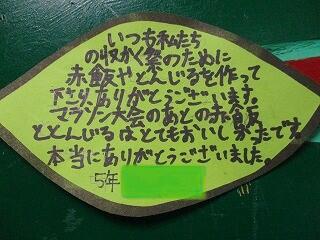 いつも私たち
の収かく祭のために
赤飯やとんじるを作って
下さり、ありがとうございます。
マラソン大会のあとの赤飯
ととんじるはとてもおいしかったです。
本当にありがとうございました。
5年